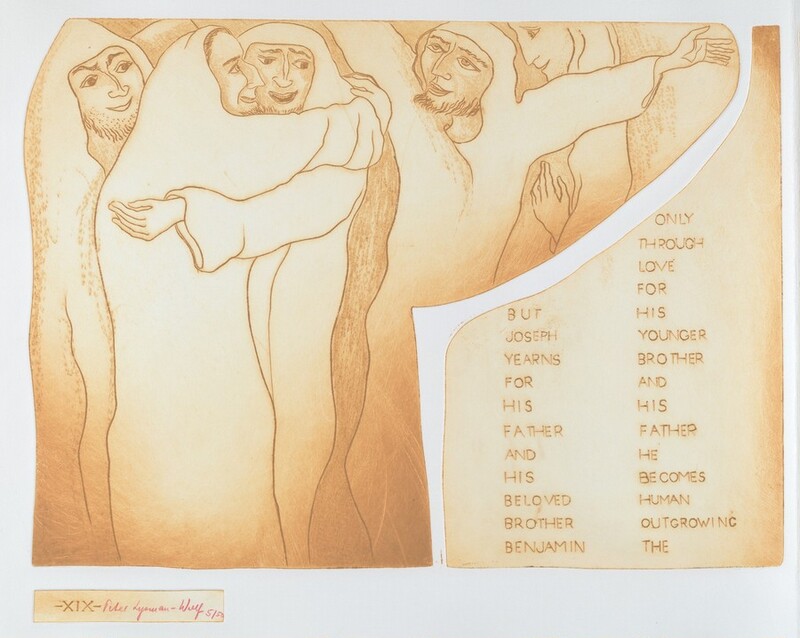 BUT
JOSEPH
YEARNS
FOR
HIS
FATHER
AND
HIS
BELOVED
BROTHER
BENJAMIN
ONLY
THROUGH
LOVE
FOR
HIS
YOUNGER
BROTHER
AND
HIS
FATHER
HE
BECOMES
HUMAN
OUTGROWING
THE
-XIX- Peter Lipman-Wulf 5/50